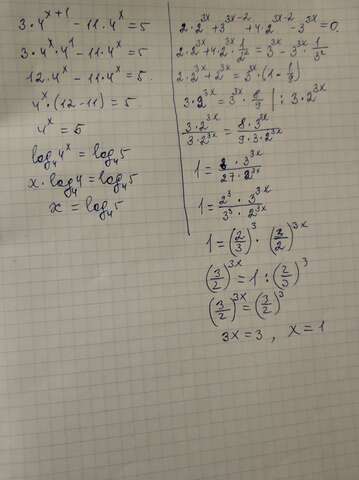 3·4^(x+1) - 11·4^x = 5
3·4^x·4^1 - 11·4^x = 5
12·4^x - 11·4^x = 5.
4^x·(12-11) = 5
4^x = 5
log₄4^x = log₄5
x·log₄4 = log₄5
x = log₄5
2·2^(3x) + 3^(3x-2) + 4·2^(3x-2) - 3^(3x) = 0.
2·2^(3x) + 4·2^(3x)·1/2² = 3^(3x) - 3^(3x)·1/3²
2·2^(3x) + 2^(3x) = 3^(3x)·(1 - 1/9)
3·2^(3x) = 3^(3x)·8/9 | : 3·2^(3x)
3·2^(3x)/3·2^(3x) = 8·3^(3x)/9·3·2^(3x)
1 = 8·3^(3x)/27·2^(3x)
1 = 2³·3^(3x)/3³·2^(3x)
1 = (2/3)³·(3/2)^(3x)
(3/2)^(3x) = 1 : (2/3)³
(3/2)^(3x) = (3/2)³
3x = 3, x = 1